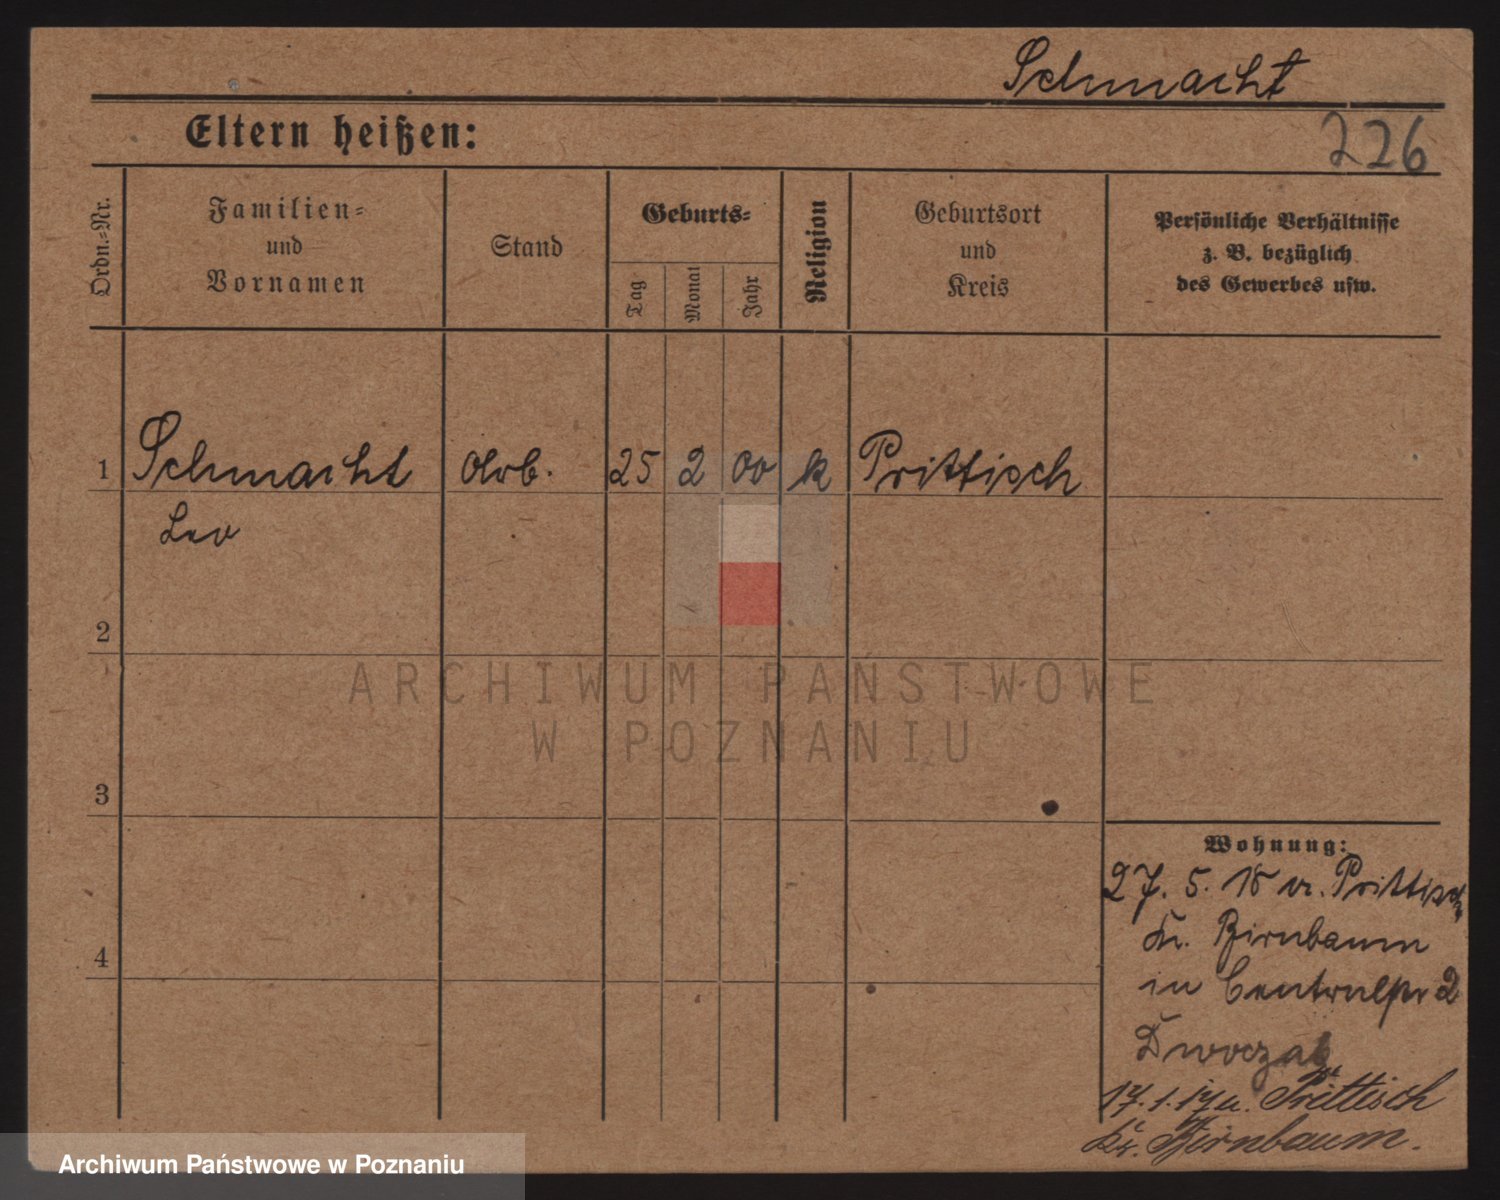 Schmacht
226
Eltern heißen:
Ordn.=Nr.
Familien=
und
Vornamen
Stand
Geburts=
Tag
Monat
Jahr
Religion
Geburtsort
und
Kreis
Persönliche Verhältnisse
z. B. bezüglich
des Gewerbes usw.
1 Schmacht Arb. 25 2 00 k Prittisch
Leo
2
3
4
ARCHIWUM PAŃSTWOWE
W POZNANIU
Wohnung:
27. 5. v. Prittisch
Kr. Birnbaum
in Centralstr 2
17. 1. n. Prittisch
Kr. Birnbaum.
Archiwum Państwowe w Poznaniu